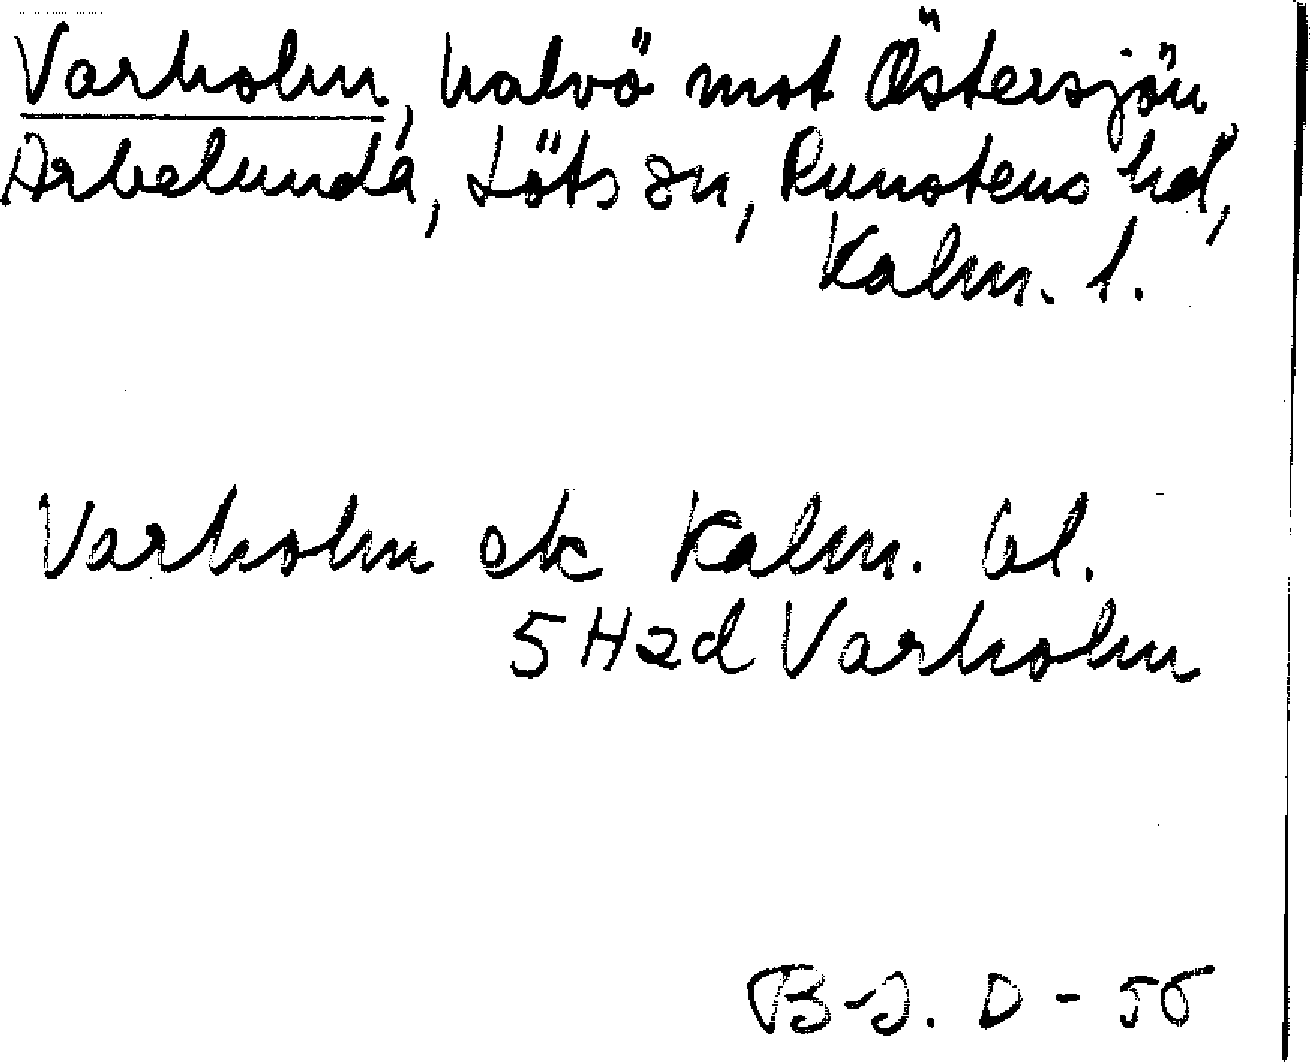 Varholm, halvö mot Östersjön
Arbelunda, Löts sn, Runstens hd,
Kalm. l.
Varholm ek Kalm. bl.
5H2d Varholm
B-J. D - 55